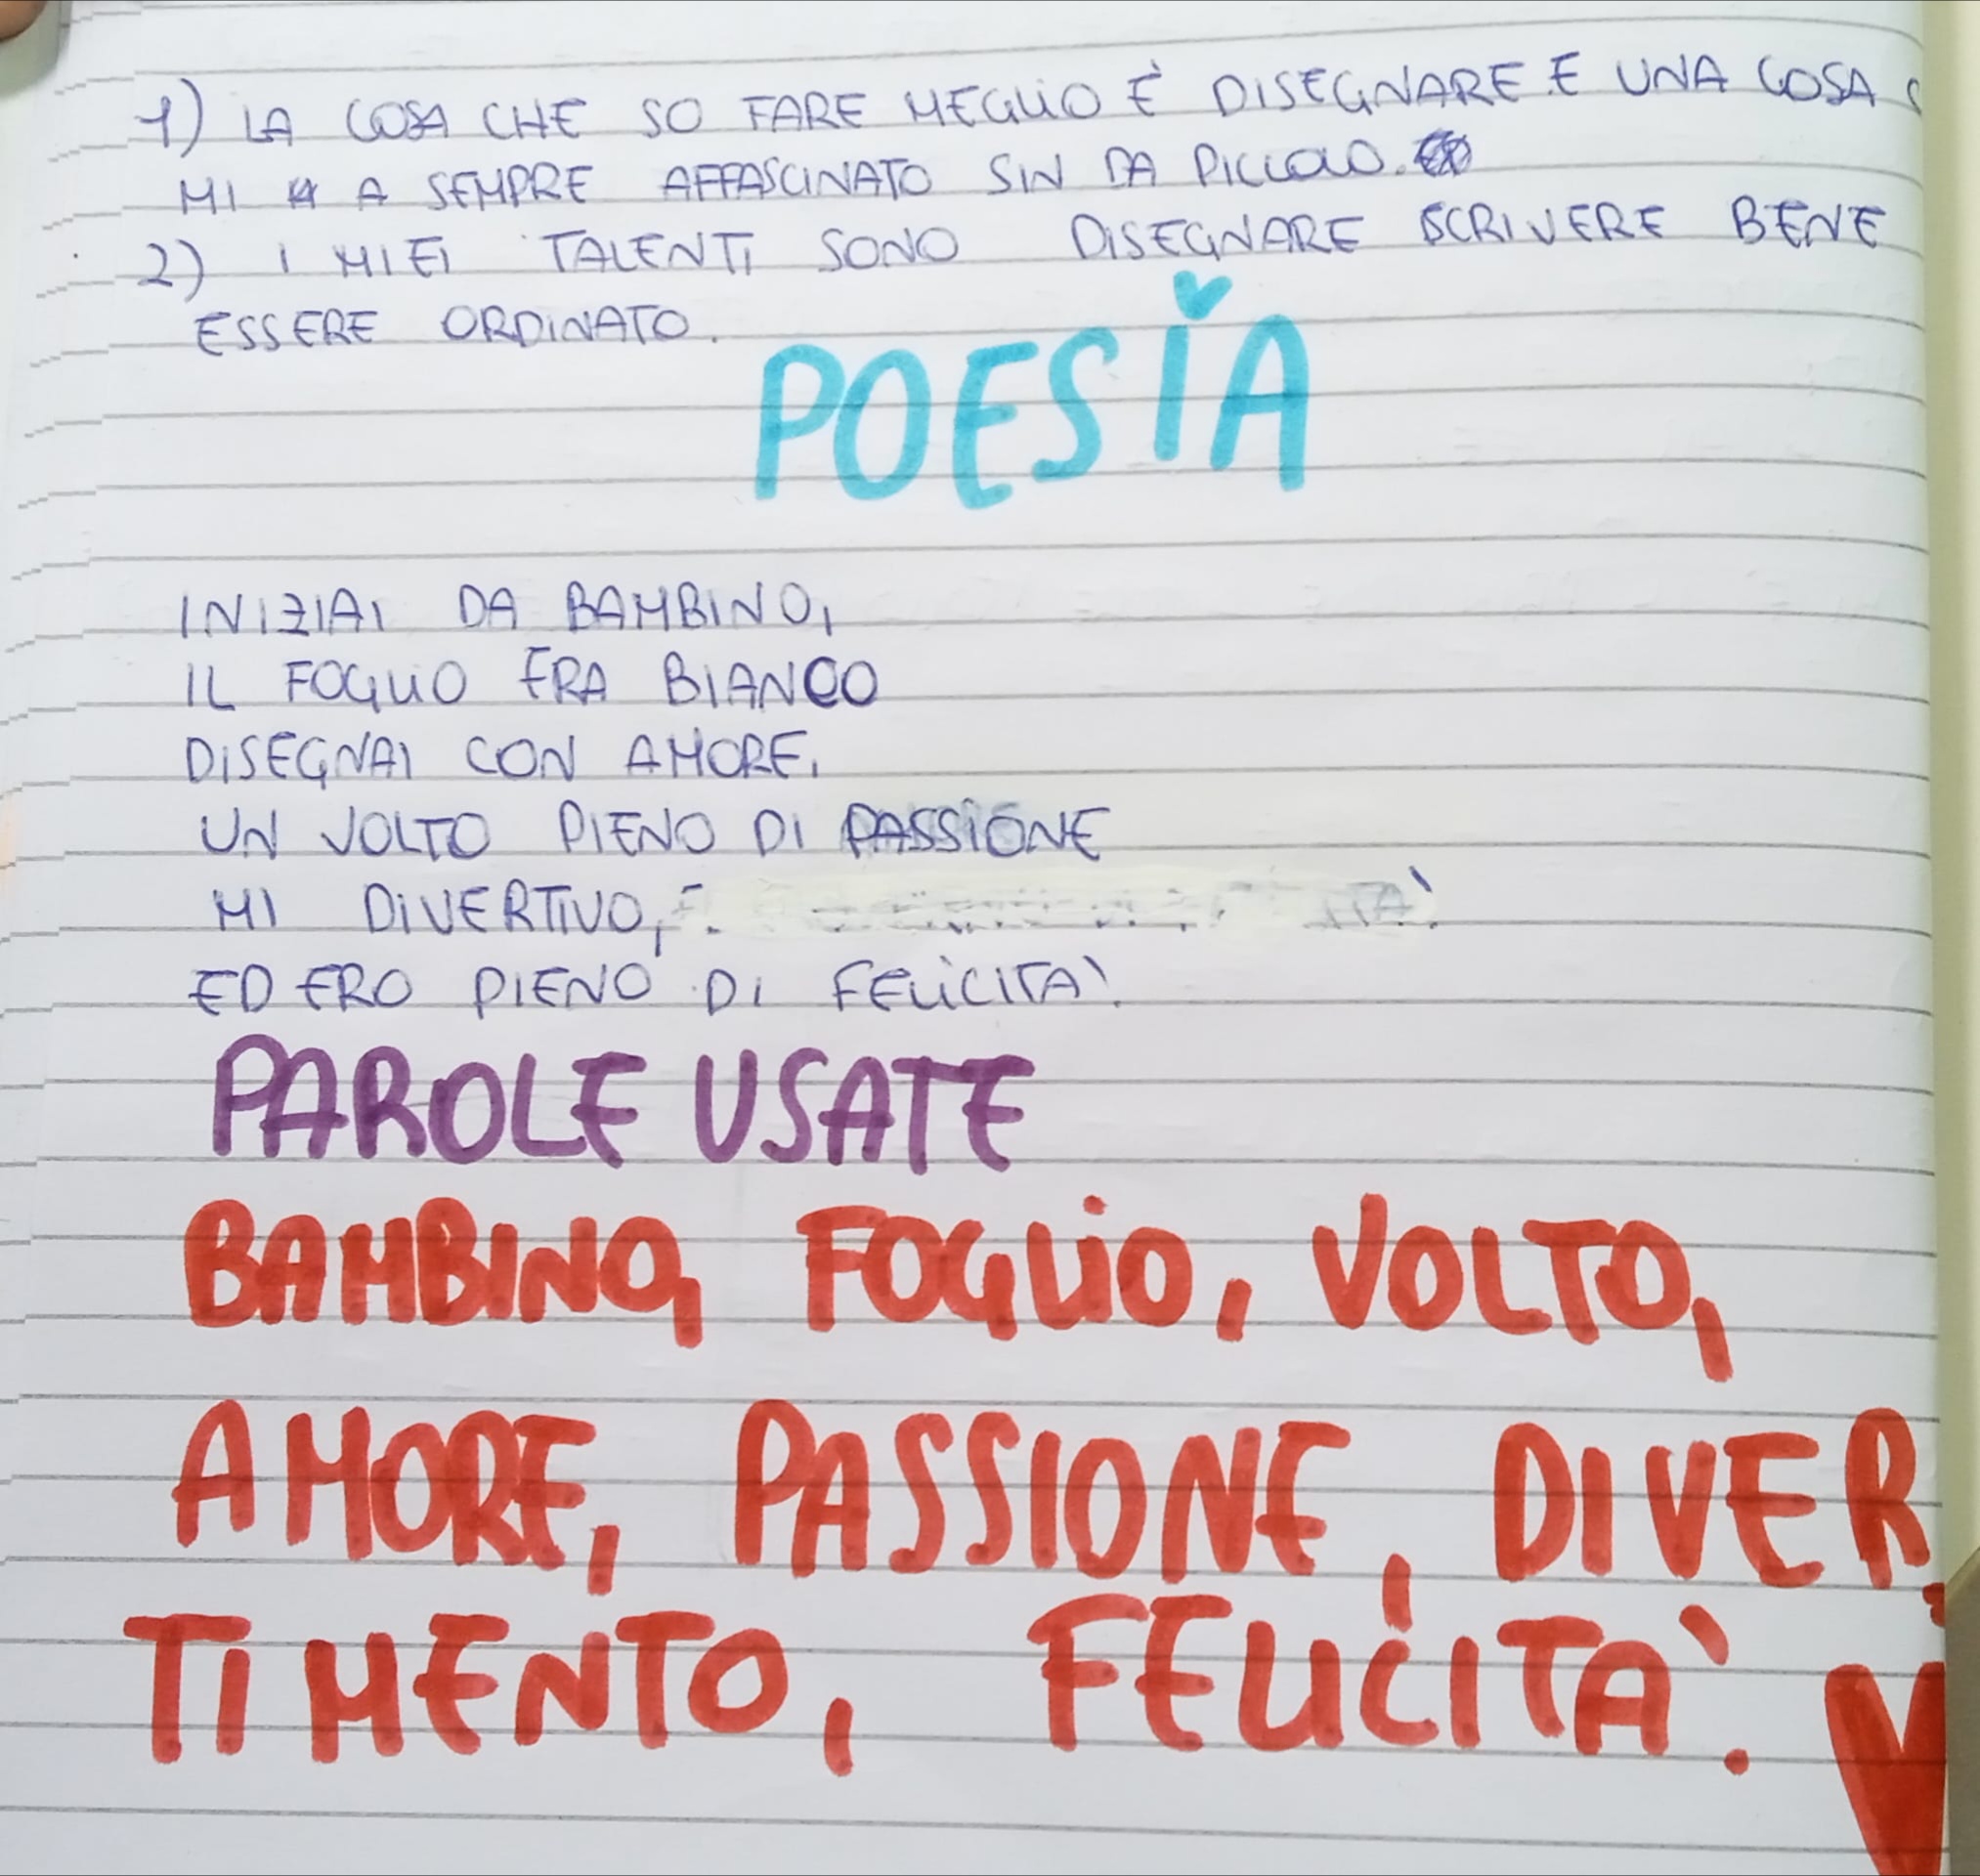 1) LA COSA CHE SO FARE MEGLIO È DISEGNARE E UNA COSA
MI A SEMPRE AFFASCINATO SIN DA PICCOLO.
2) I MIEI TALENTI SONO DISEGNARE SCRIVERE BENE
ESSERE ORDINATO.
POESIA
INIZIAI DA BAMBINO,
IL FOGLIO ERA BIANCO
DISEGNAI CON AMORE,
UN VOLTO PIENO DI PASSIONE
MI DIVERTIVO,
ED ERO PIENO DI FELICITA'.
PAROLE USATE
BAMBINO, FOGLIO, VOLTO,
AMORE, PASSIONE, DIVER
TIMENTO, FELICITA'.